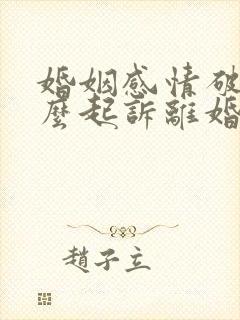 婚姻感情破
麼起訴離婚
趙子立